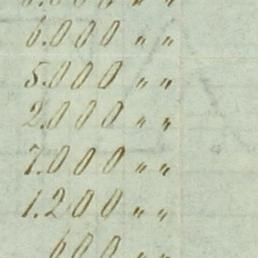 6.000 〃 〃
5.000 〃 〃
2.000 〃 〃
7.000 〃 〃
1.200 〃 〃
600 〃 〃